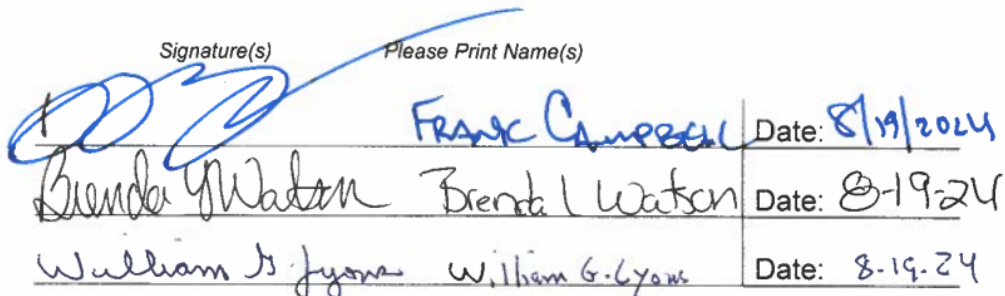 Signature(s) Please Print Name(s)
FRANK CAMPBELL Date: 8/19/2024
Brenda Y Watson Brenda L Watson Date: 8-19-24
William G. Lyons William G. Lyons Date: 8-19-24